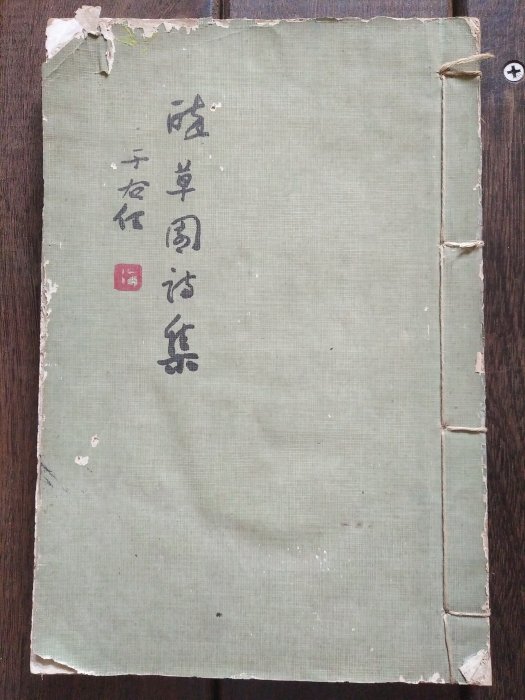 醉草園詩集
于右任